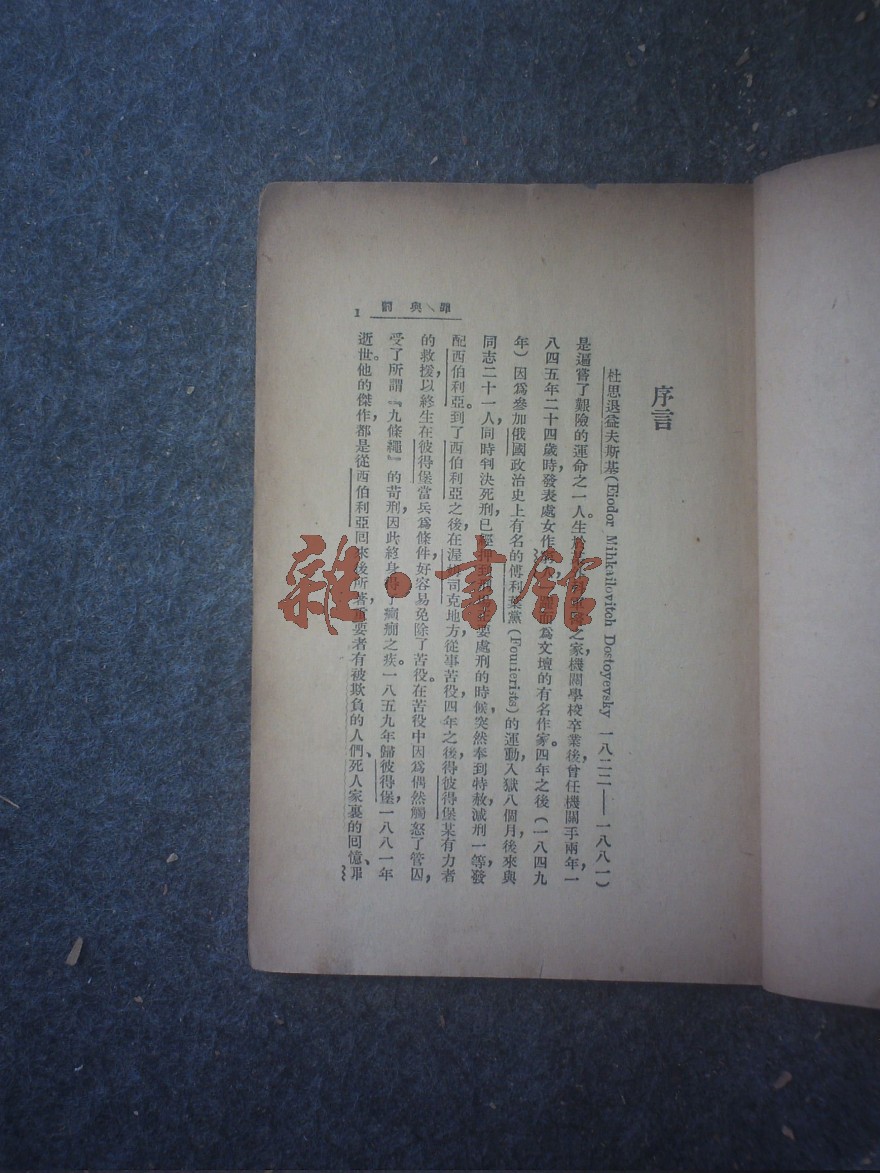 序言
杜思退益夫斯基(Fiodor Mihkailovitch Dostoyevsky 一八二二——一八八一)
是遍嘗了艱險的運命之一人。生於 之家，機關學校卒業後，曾任機關手兩年，一
八四五年二十四歲時，發表處女作 為文壇的有名作家。四年之後(一八四九
年)因爲參加俄國政治史上有名的傅利葉黨(Fourierists)的運動，入獄八個月後來與
同志二十一人，同時判決死刑，已經 要處刑的時候，突然奉到特赦，減刑一等，發
配西伯利亞。到了西伯利亞之後，在渥姆司克地方從事苦役四年之後，得彼得堡某有力者
的救援，以終生在彼得堡當兵爲條件好容易免除了苦役。在苦役中因爲偶然觸怒了管囚，
受了所謂『九條繩』的苛刑，因此終身得了癲癇之疾。一八五九年歸彼得堡，一八八一年
逝世。他的傑作，都是從西伯利亞回來後所著，重要者有被欺負的人們、死人家裏的回憶、罪
罪與罰
1
雜·書館